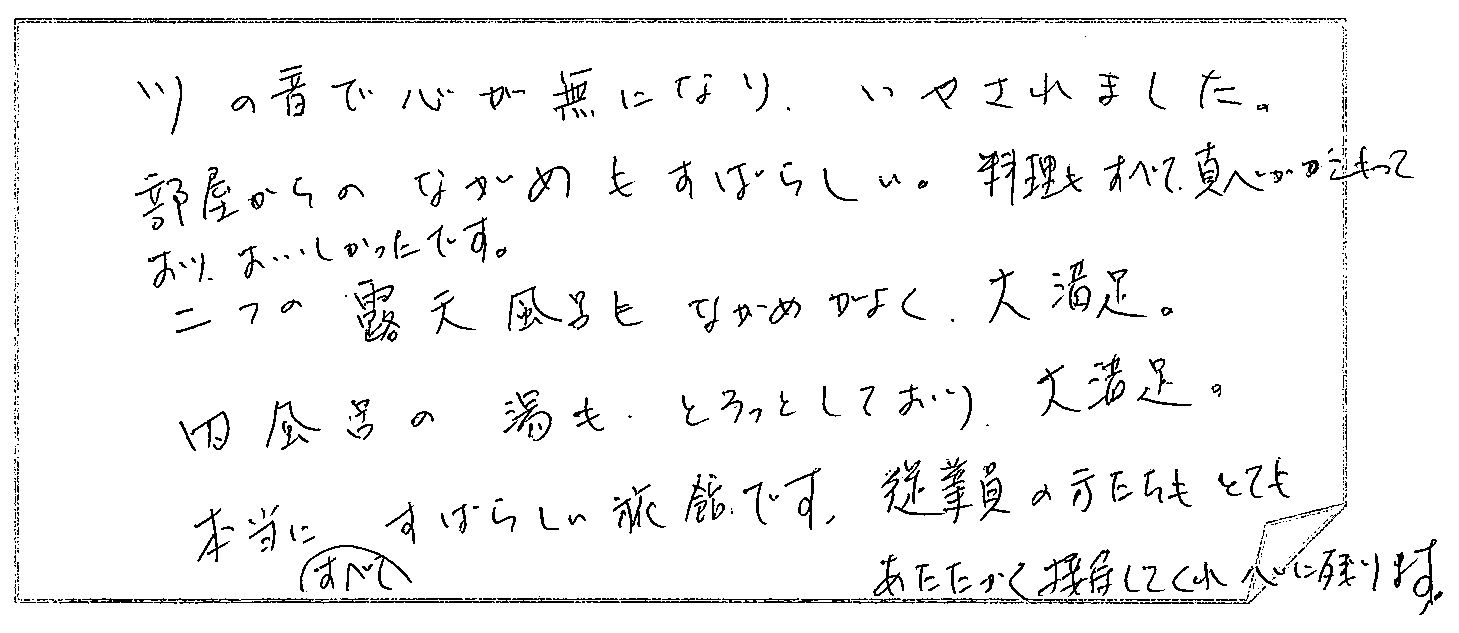 川の音で心が無になり、いやされました。
部屋からのながめもすばらしい。料理もすべて、真心がこもって
おり、おいしかったです。
二つの露天風呂もながめがよく、大満足。
内風呂の湯も、とろっとしており、大満足。
本当にすばらしい旅館です。従業員の方たちもとても
すべて
あたたかく接待してくれ心に残ります。